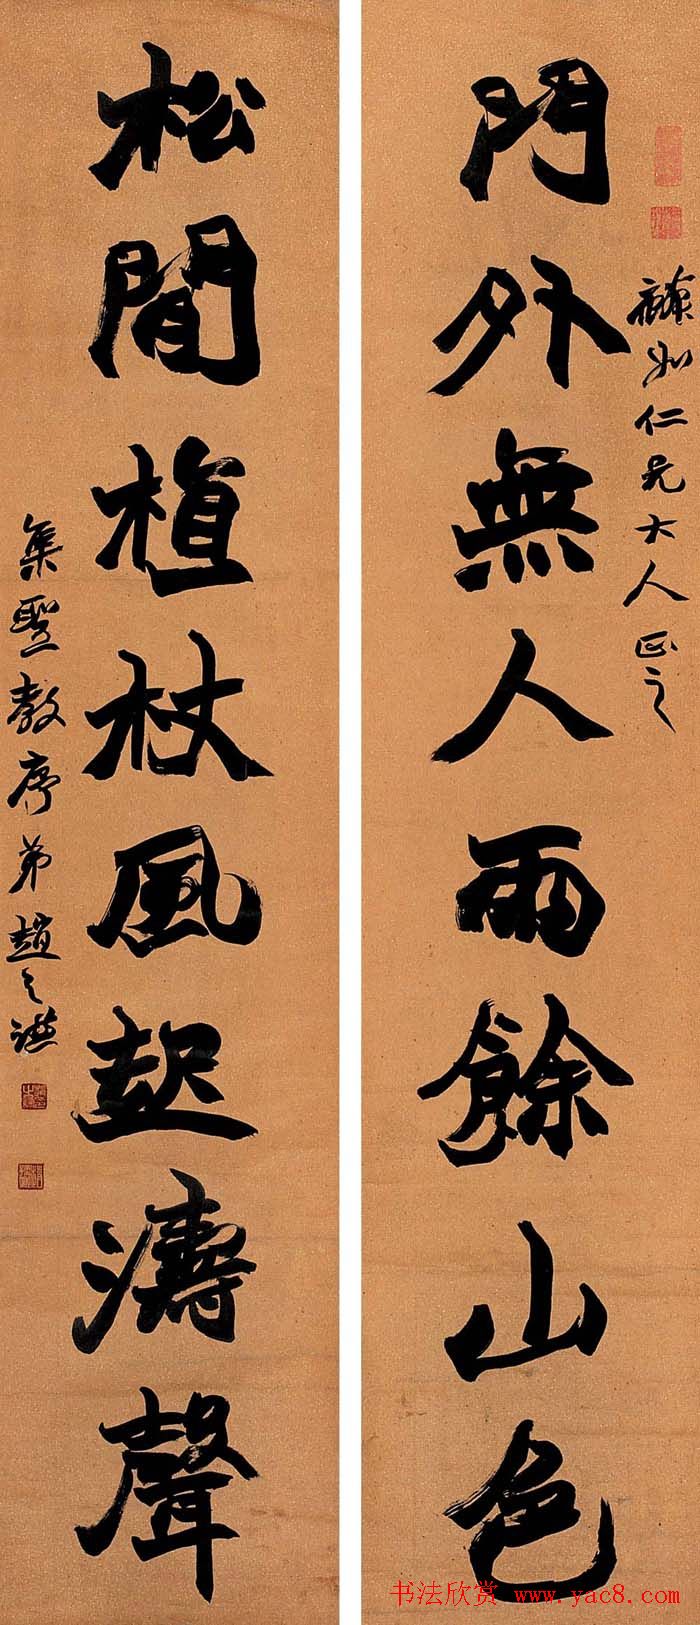 門外無人雨餘山色
仁兄大人正之
松間植杖風起濤聲
集聖教序弟趙之謙
书法欣赏 www.yac8.com